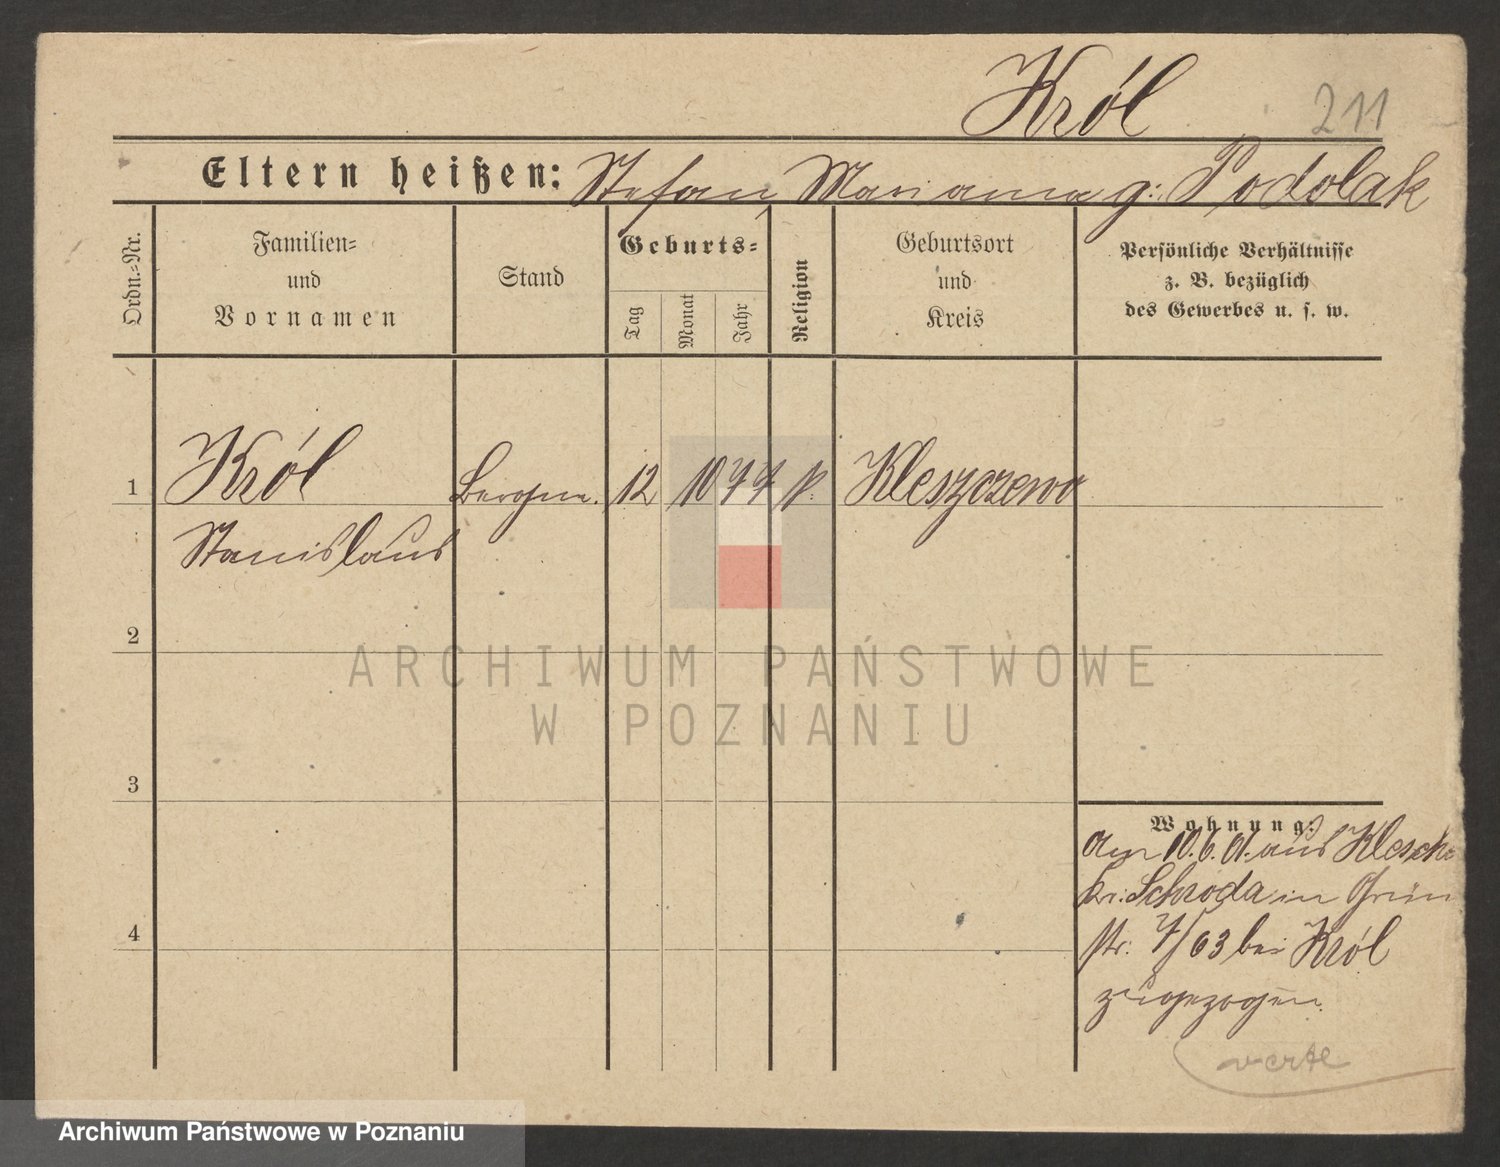 Król
211
Eltern heißen: Stefan Marianna g: Podolak
Ordn.=Nr.
Familien=
und
Vornamen
Stand
Geburts=
Tag
Monat
Jahr
Religion
Geburtsort
und
Kreis
Persönliche Verhältnisse
z. B. bezüglich
des Gewerbes u. s. w.
1 Król Bergm. 12 10 77 k: Kleszczewo
Stanislaus
2
ARCHIWUM PAŃSTWOWE
W POZNANIU
3
Wohnung:
am 10.6.01. aus Klesch
kr: Schroda in Grün
str: 7/63 bei Król
zugezogen.
4
verte
Archiwum Państwowe w Poznaniu